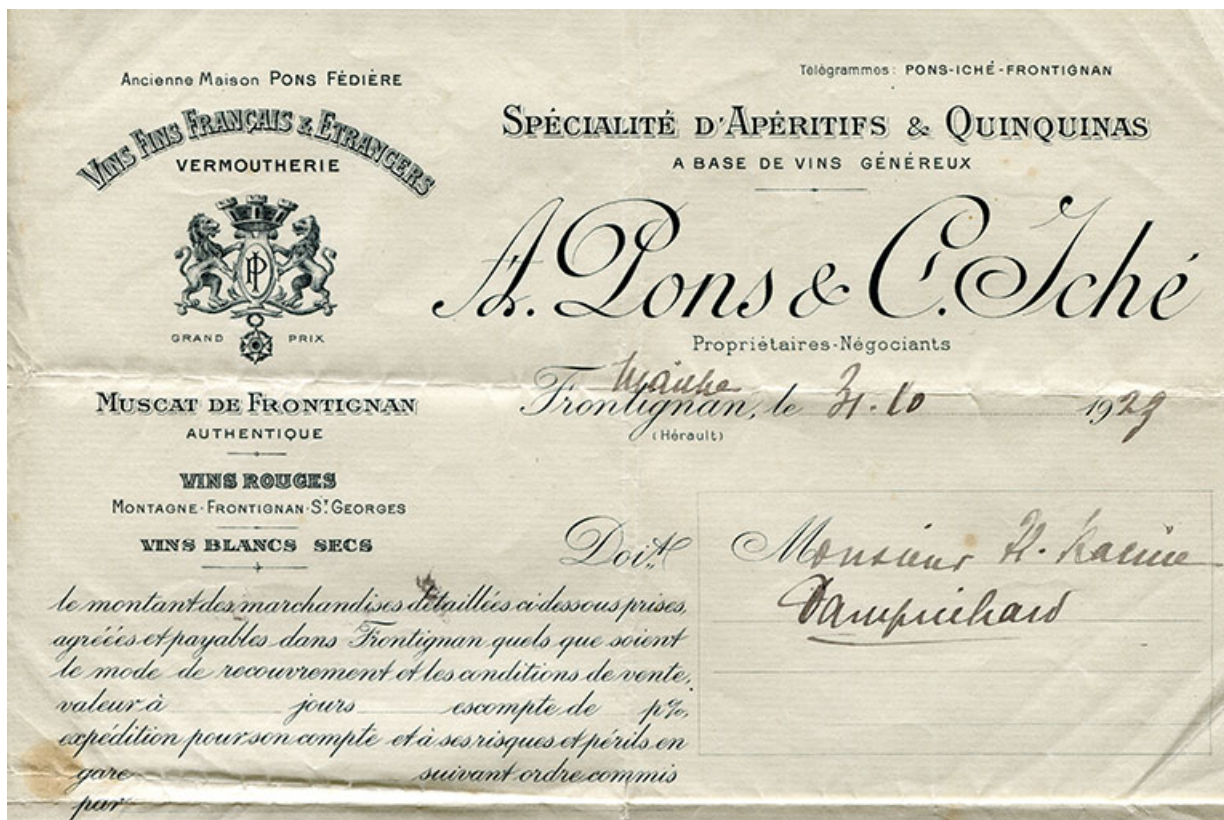 Ancienne Maison PONS FÉDIÈRE
VINS FINS FRANÇAIS & ETRANGERS
VERMOUTHERIE
PI
GRAND PRIX
MUSCAT DE FRONTIGNAN
AUTHENTIQUE
VINS ROUGES
MONTAGNE-FRONTIGNAN-ST GEORGES
VINS BLANCS SECS
Télégrammes: PONS-ICHÉ-FRONTIGNAN
SPÉCIALITÉ D'APÉRITIFS & QUINQUINAS
A BASE DE VINS GÉNÉREUX
A. Pons & C. Iché
Propriétaires-Négociants
Frontignan, le 31.10 1929
(Hérault)
Doit
Monsieur H. Racine
Damprichard
le montant des marchandises détaillées ci dessous prises,
agréées et payables dans Frontignan quels que soient
le mode de recouvrement et les conditions de vente,
valeur à jours escompte de p%,
expédition pour son compte et à ses risques et périls en
gare suivant ordre commis
par